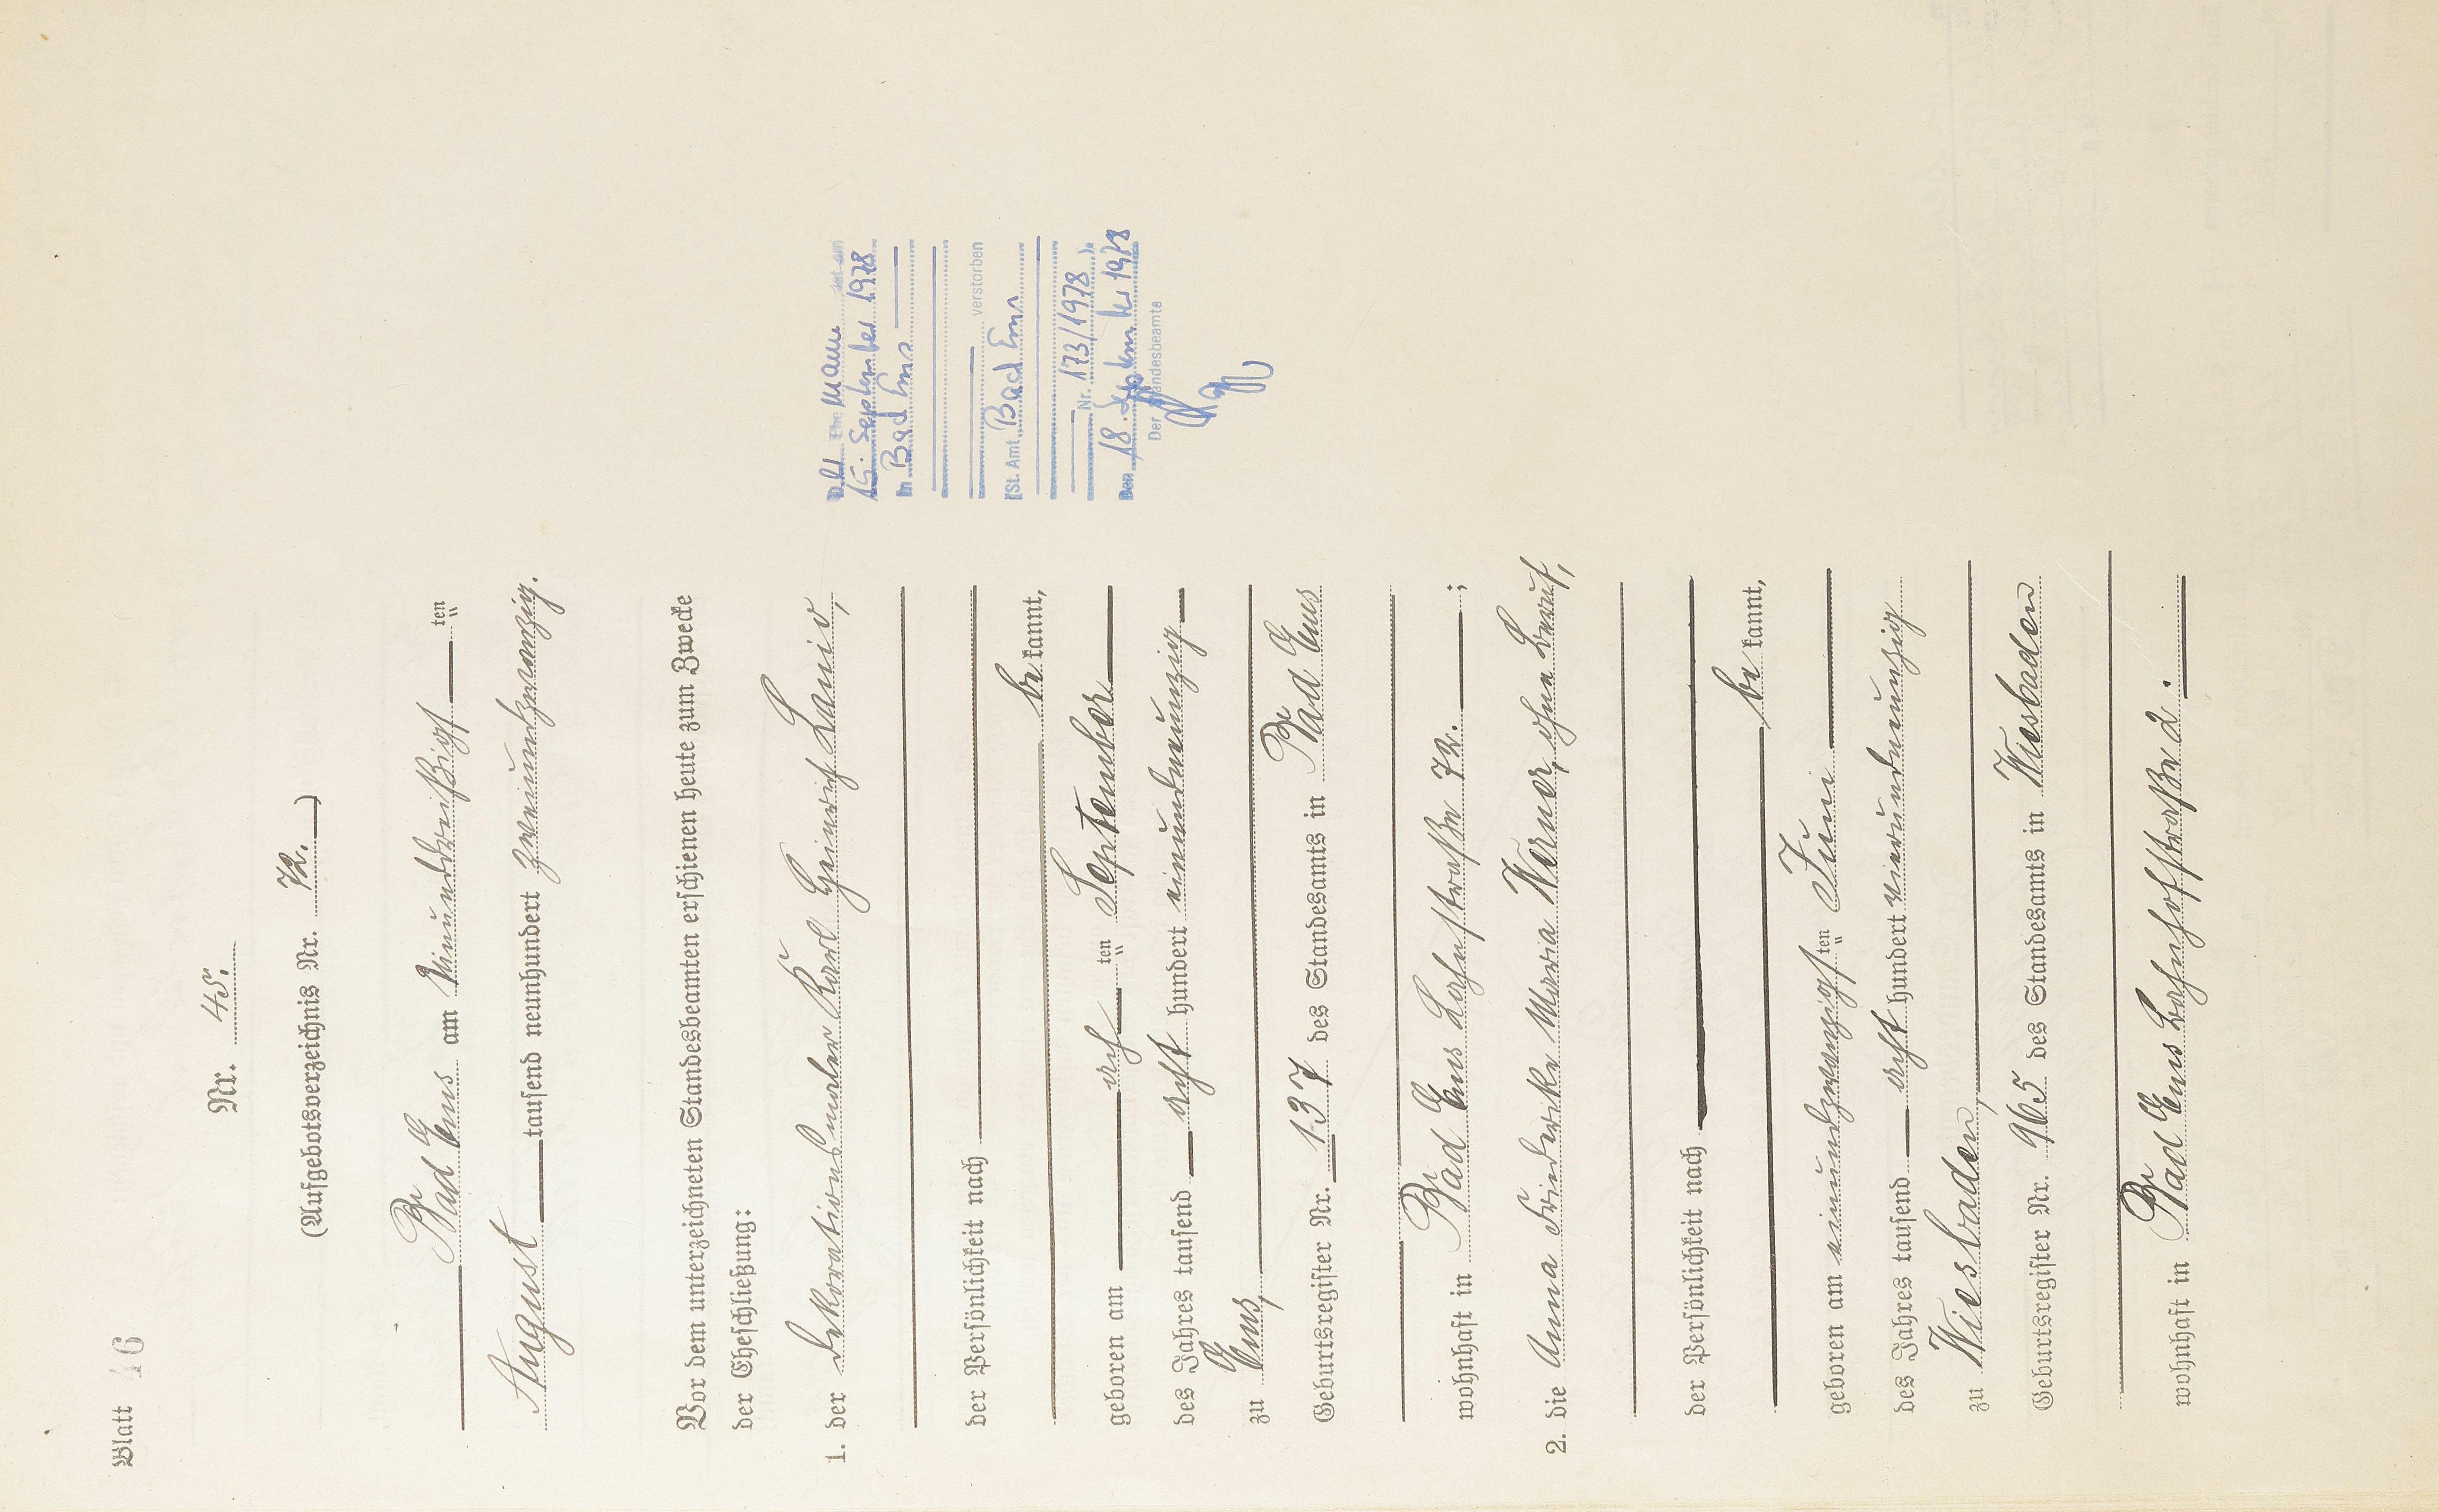 Blatt 46
Nr. 45.
(Aufgebotsverzeichnis Nr. 72.)
Bad Ems am Neununddreißigsten
August tausend neunhundert zweiundzwanzig.
Vor dem unterzeichneten Standesbeamten erschienen heute zum Zwecke
der Eheschließung:
1. der Dekorationsmaler Karl Heinrich Lanio,
der Persönlichkeit nach
be kannt,
geboren am acht ten September
des Jahres tausend acht hundert einundneunzig
zu Ems,
Geburtsregister Nr. 137 des Standesamts in Bad Ems
wohnhaft in Bad Ems Lahnstraße 72. ;
2. die Anna Friederike Maria Werner, ohne Beruf,
der Persönlichkeit nach
be kannt,
geboren am einundzwanzigsten Juni
des Jahres tausend acht hundert vierundneunzig
zu Wiesbaden,
Geburtsregister Nr. 965 des Standesamts in Wiesbaden
wohnhaft in Bad Ems Bahnhofstraße 2.
Der Ehe mann ist am
15. September 1978
in Bad Ems
verstorben
(St. Amt Bad Ems
Nr. 173/1978 ).
Den 18. September 1978
Der Standesbeamte